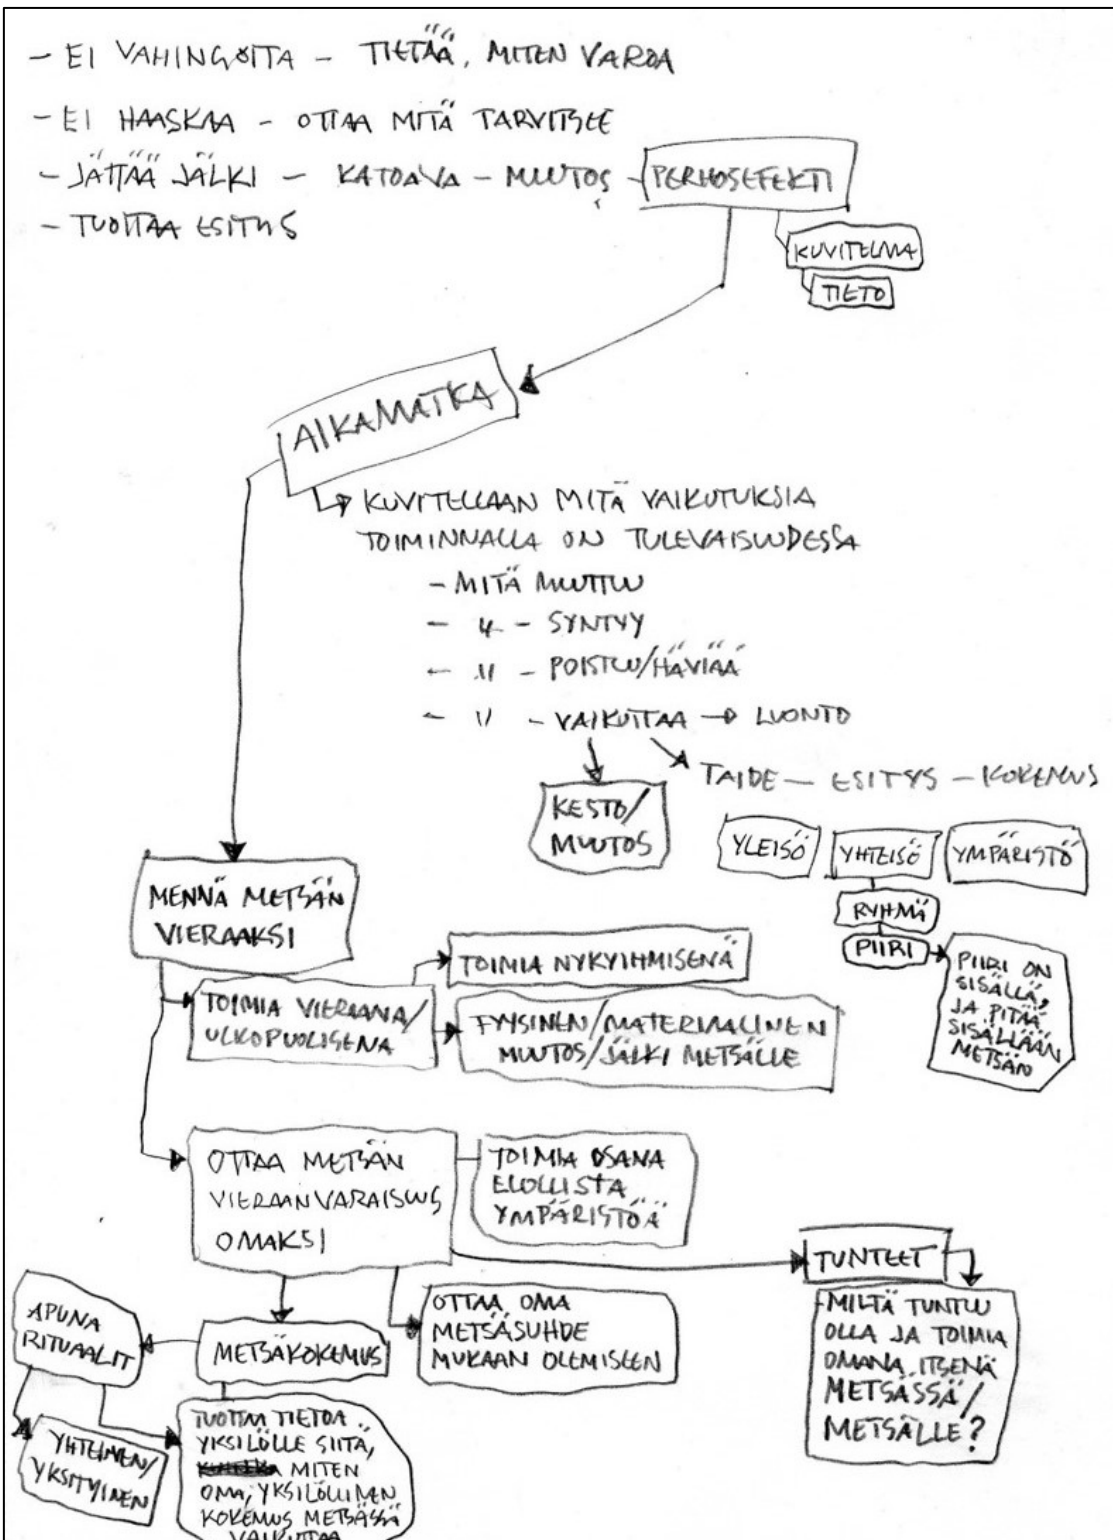 - EI VAHINGOITA - TIETÄÄ, MITEN VAROA
- EI HAASKAA - OTTAA MITÄ TARVITSEE
- JÄTTÄÄ JÄLKI - KATOAVA - MUUTOS - PERHOSEFEKTI
- TUOTTAA ESITYS
KUVITELMA
TIETO
AIKAMATKA
KUVITELLAAN MITÄ VAIKUTUKSIA
TOIMINNALLA ON TULEVAISUUDESSA
- MITÄ MUUTTUU
- 11 - SYNTYY
- 11 - POISTUU/HÄVIÄÄ
- 11 - VAIKUTTAA → LUONTO
TAIDE - ESITYS - KOKEMUS
KESTO/
MUUTOS
YLEISÖ YHTEISÖ YMPÄRISTÖ
RYHMÄ
PIIRI
PIIRI ON
SISÄLLÄ,
JA PITÄÄ
SISÄLLÄÄN
METSÄN
MENNÄ METSÄN
VIERAAKSI
TOIMIA VIERAANA/
ULKOPUOLISENA
TOIMIA NYKYIHMISENÄ
FYYSINEN/MATERIAALINEN
MUUTOS/JÄLKI METSÄLLE
OTTAA METSÄN
VIERAANVARAISUUS
OMAKSI
TOIMIA OSANA
ELOLLISTA
YMPÄRISTÖÄ
TUNTEET
- MILTÄ TUNTUU
OLLA JA TOIMIA
OMANA ITSENÄ
METSÄSSÄ/
METSÄLLE?
OTTAA OMA
METSÄSUHDE
MUKAAN OLEMISEEN
METSÄKOKEMUS
APUNA
RITUAALIT
YHTEINEN/
YKSITYINEN
TUOTTAA TIETOA
YKSILÖLLE SIITÄ,
MITEN
OMA, YKSILÖLLINEN
KOKEMUS METSÄSSÄ
VAIKUTTAA